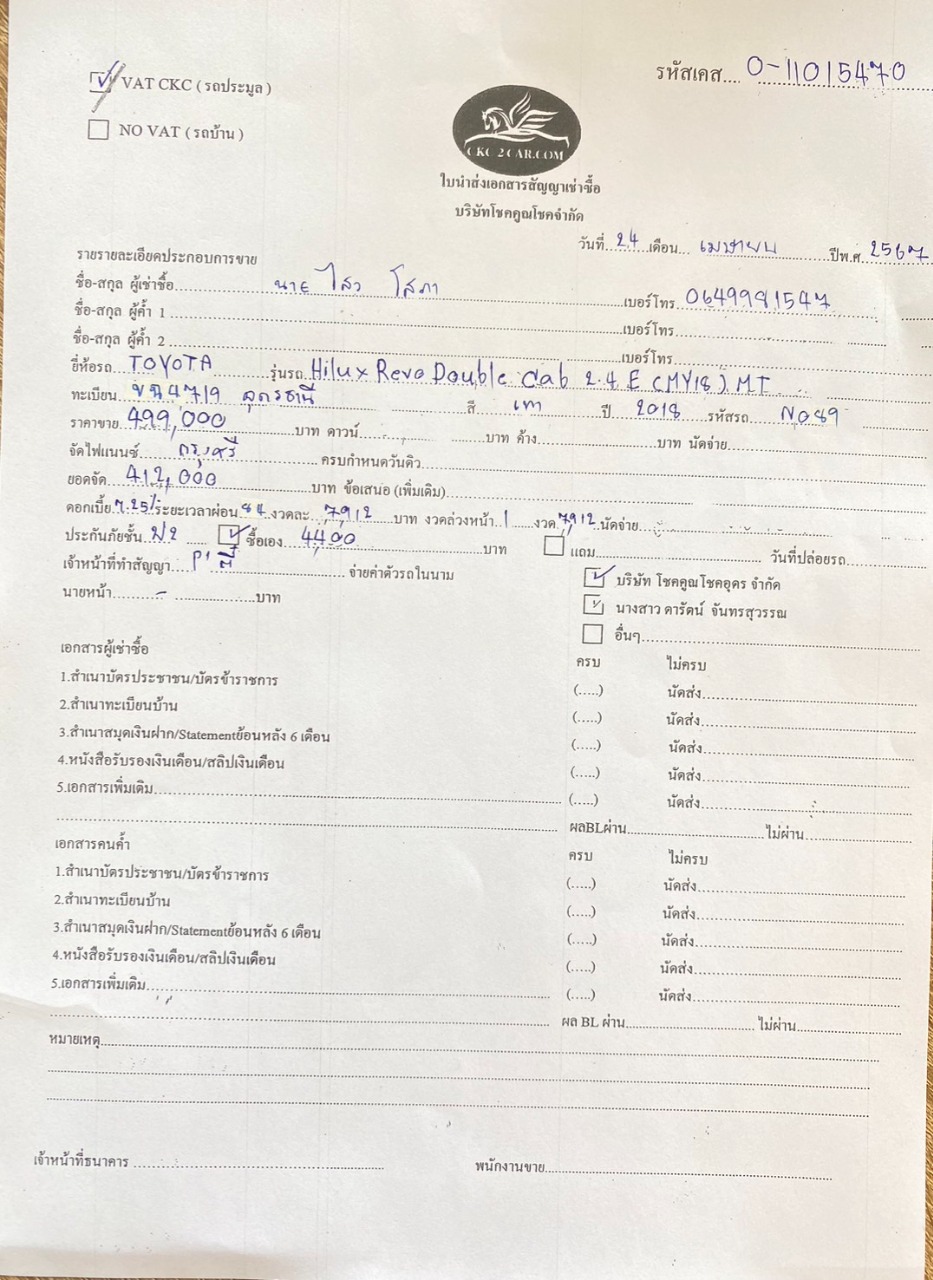 รหัสเคส.... 0-11015470
☑ VAT CKC ( รถประมูล )
☐ NO VAT ( รถบ้าน )
CKC 2 CAR.COM
ใบนำส่งเอกสารสัญญาเช่าซื้อ
บริษัทโชคคูณโชคจำกัด
วันที่ 24 เดือน เมษายน ปีพ.ศ. 2567
รายรายละเอียดประกอบการขาย
ชื่อ-สกุล ผู้เช่าซื้อ นาย ไสว โสภา เบอร์โทร 0649981547
ชื่อ-สกุล ผู้ค้ำ 1 เบอร์โทร
ชื่อ-สกุล ผู้ค้ำ 2 เบอร์โทร
ยี่ห้อรถ TOYOTA รุ่นรถ Hilux Revo Double Cab 2.4 E (MY18) MT
ทะเบียน 4719 อุดรธานี สี เทา ปี 2018 รหัสรถ N089
ราคาขาย 499,000 บาท ดาวน์ บาท ค้าง บาท นัดจ่าย
จัดไฟแนนซ์ กรุงศรี ครบกำหนดวันดิว
ยอดจัด 412,000 บาท ข้อเสนอ (เพิ่มเติม)
ดอกเบี้ย 7.25% ระยะเวลาผ่อน 84 งวดละ 7,912 บาท งวดล่วงหน้า 1 งวด 7,912 นัดจ่าย
ประกันภัยชั้น ☑ ซื้อเอง 4,400 บาท ☐ แถม วันที่ปล่อยรถ
เจ้าหน้าที่ทำสัญญา จ่ายค่าตัวรถในนาม ☑ บริษัท โชคคูณโชคอุดร จำกัด
นายหน้า - บาท ☑ นางสาว ดารัตน์ จันทรสุวรรณ
☐ อื่นๆ
เอกสารผู้เช่าซื้อ ครบ ไม่ครบ
1.สำเนาบัตรประชาชน/บัตรข้าราชการ (.....) นัดส่ง
2.สำเนาทะเบียนบ้าน (.....) นัดส่ง
3.สำเนาสมุดเงินฝาก/Statementย้อนหลัง 6 เดือน (.....) นัดส่ง
4.หนังสือรับรองเงินเดือน/สลิปเงินเดือน (.....) นัดส่ง
5.เอกสารเพิ่มเติม (.....) นัดส่ง
ผลBLผ่าน ไม่ผ่าน
เอกสารคนค้ำ ครบ ไม่ครบ
1.สำเนาบัตรประชาชน/บัตรข้าราชการ (.....) นัดส่ง
2.สำเนาทะเบียนบ้าน (.....) นัดส่ง
3.สำเนาสมุดเงินฝาก/Statementย้อนหลัง 6 เดือน (.....) นัดส่ง
4.หนังสือรับรองเงินเดือน/สลิปเงินเดือน (.....) นัดส่ง
5.เอกสารเพิ่มเติม (.....) นัดส่ง
ผล BL ผ่าน ไม่ผ่าน
หมายเหตุ
เจ้าหน้าที่ธนาคาร พนักงานขาย